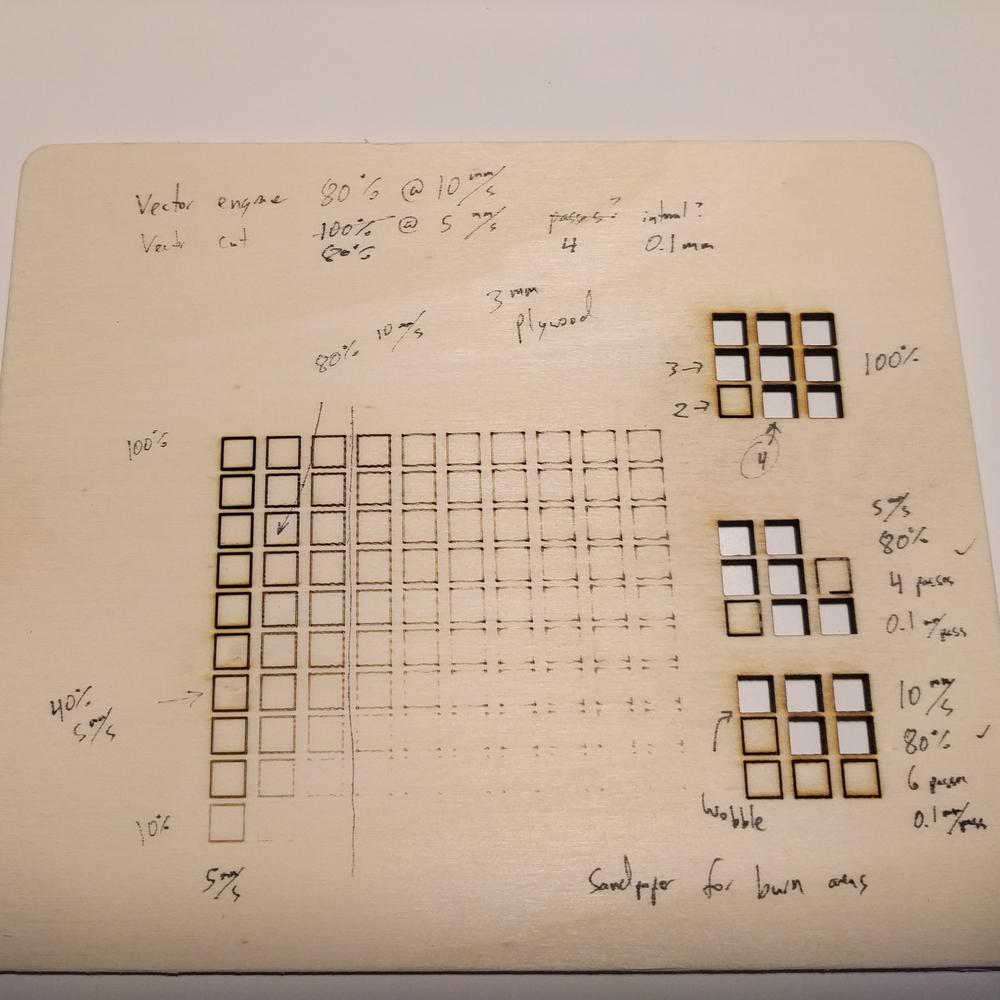 Vector engrave 80% @ 10 mm/s
Vector cut 100% @ 5 mm/s passes? interval?
80% 4 0.1 mm
3 mm
plywood
80% 10 mm/s
100%
3→
2→
4
100%
5 mm/s
80% ✓
4 passes
0.1 mm/pass
40%
5 mm/s
10 mm/s
80% ✓
6 passes
0.1 mm/pass
wobble
10%
5 mm/s
Sandpaper for burn areas